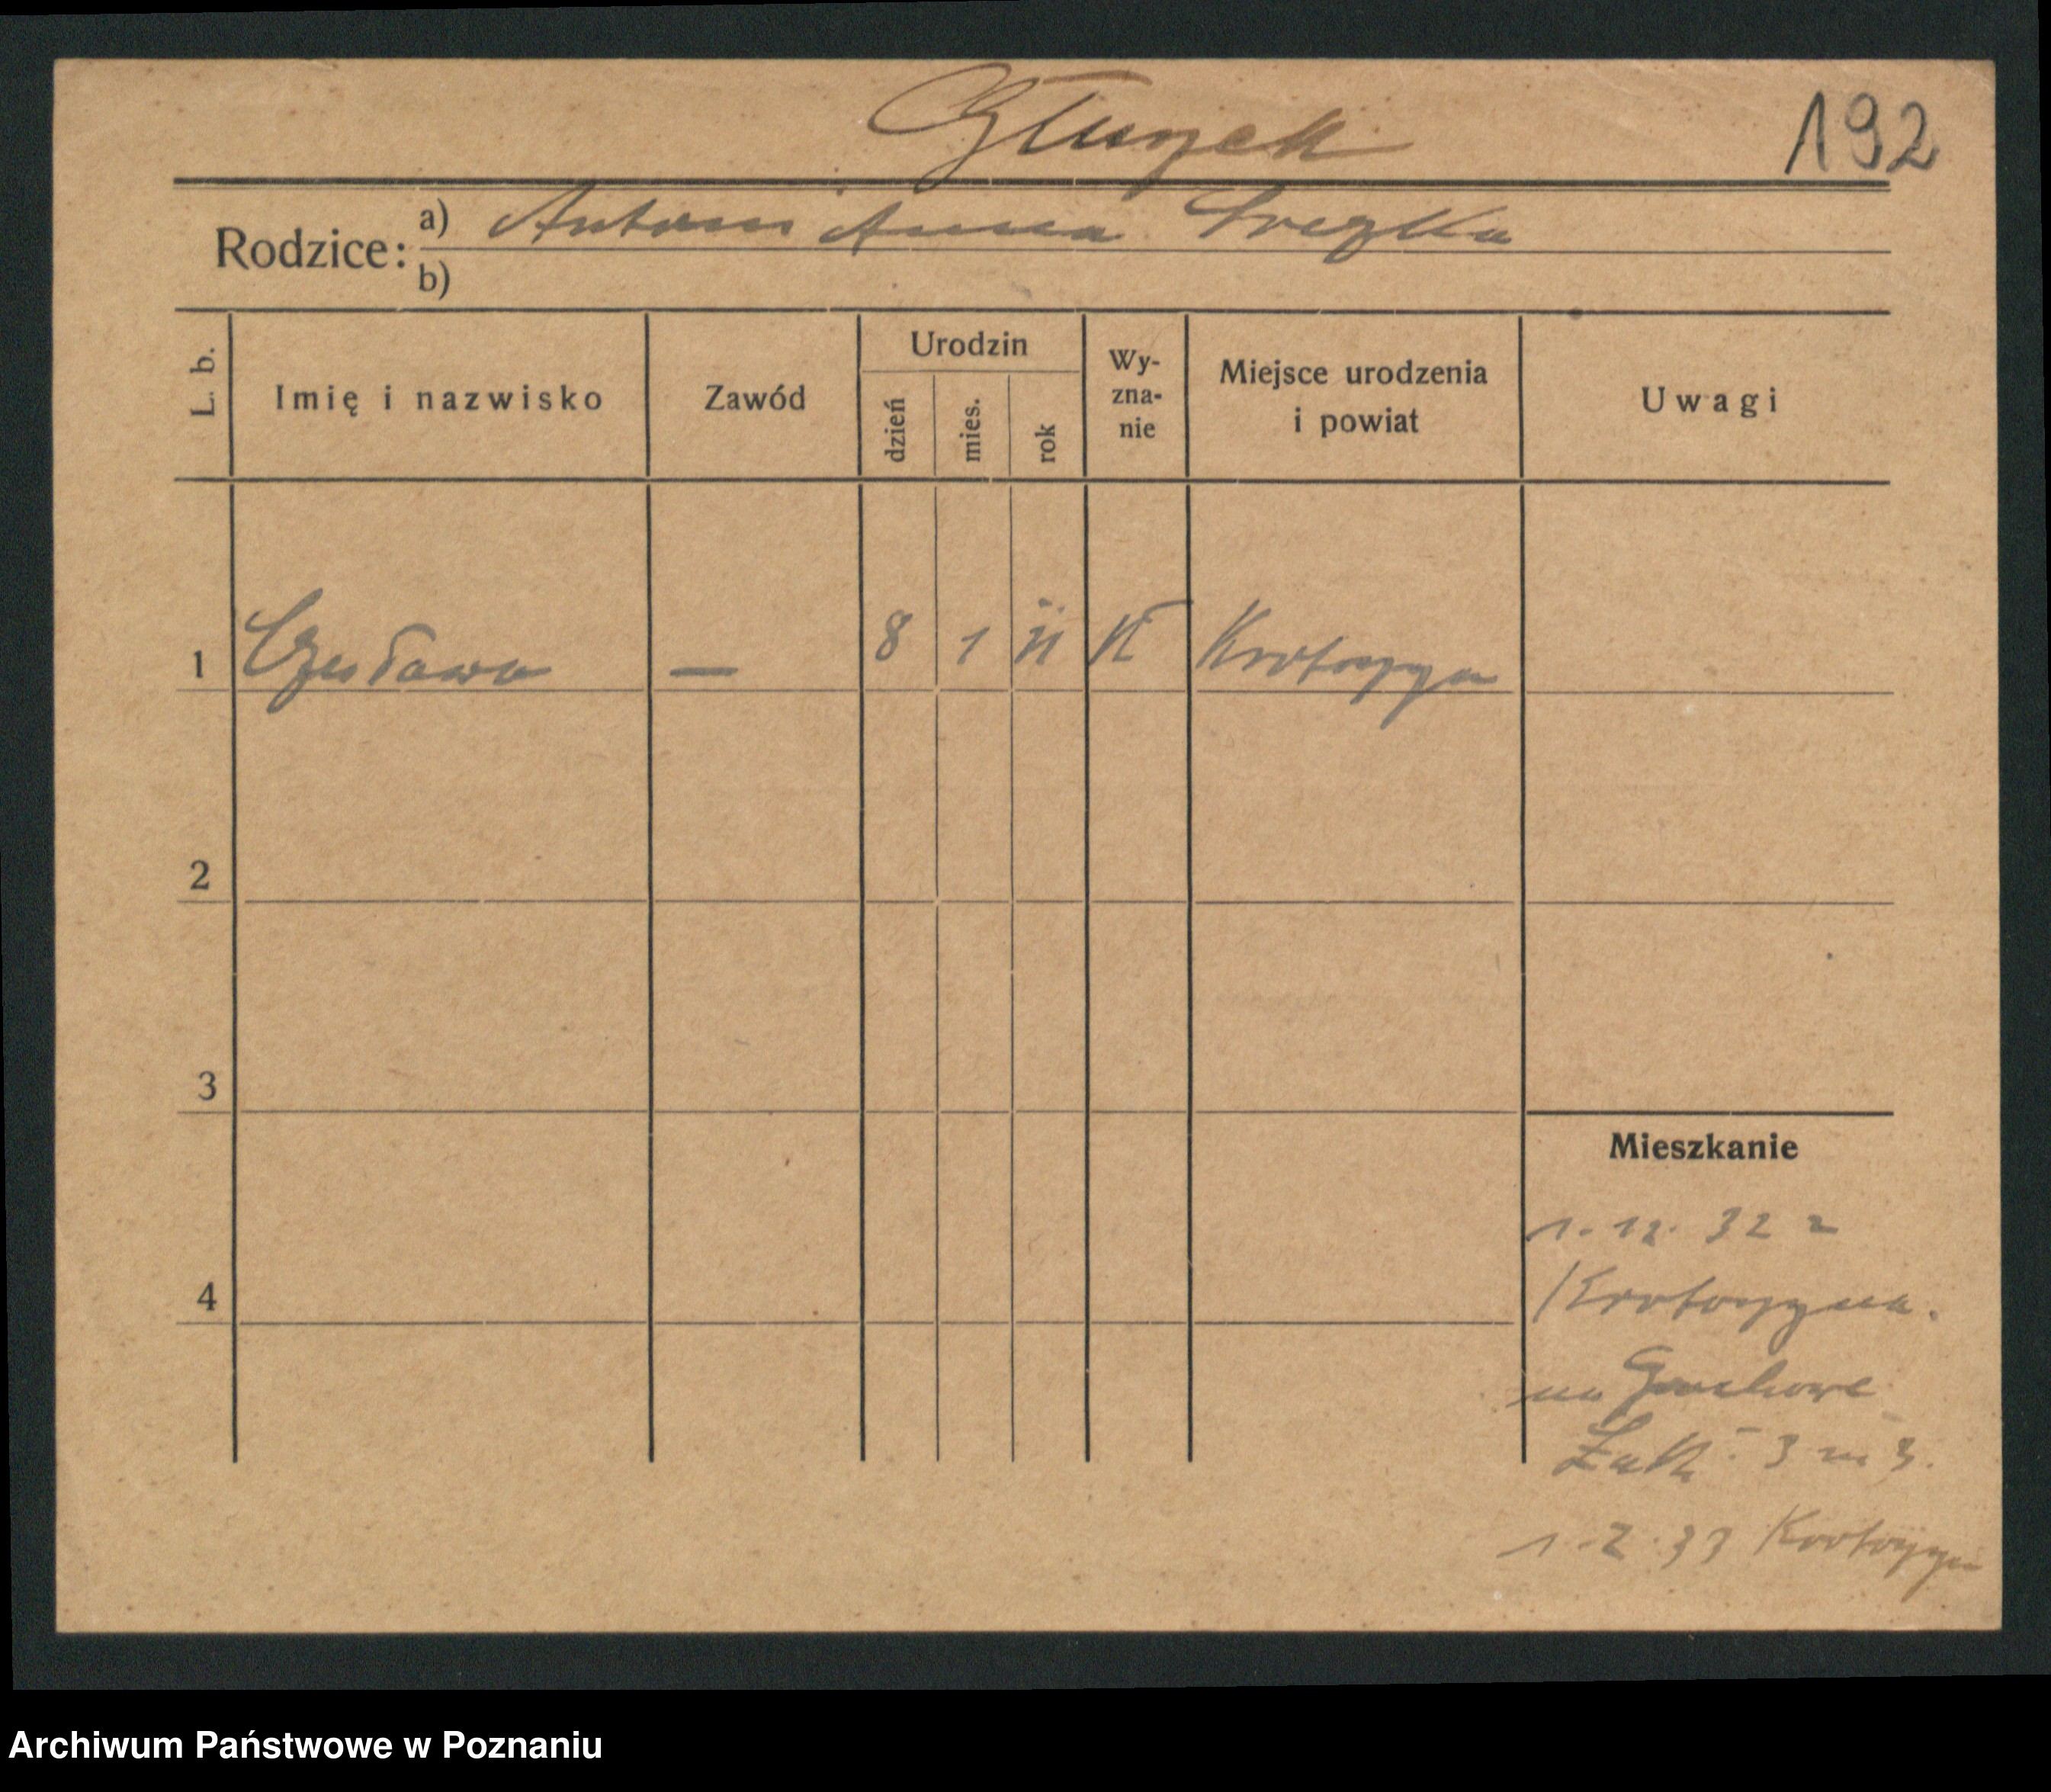 Głuszek
192
Rodzice: a) Antoni Anna
b)
L. b.
Imię i nazwisko
Zawód
Urodzin
dzień
mies.
rok
Wy-
zna-
nie
Miejsce urodzenia
i powiat
Uwagi
1 Czesława — 8 1 11 Kł Krotoszyn
2
3
4
Mieszkanie
1. 12. 32 z
Krotoszyna.
na
3 m 3.
1. 2. 33 Krotoszyn
Archiwum Państwowe w Poznaniu